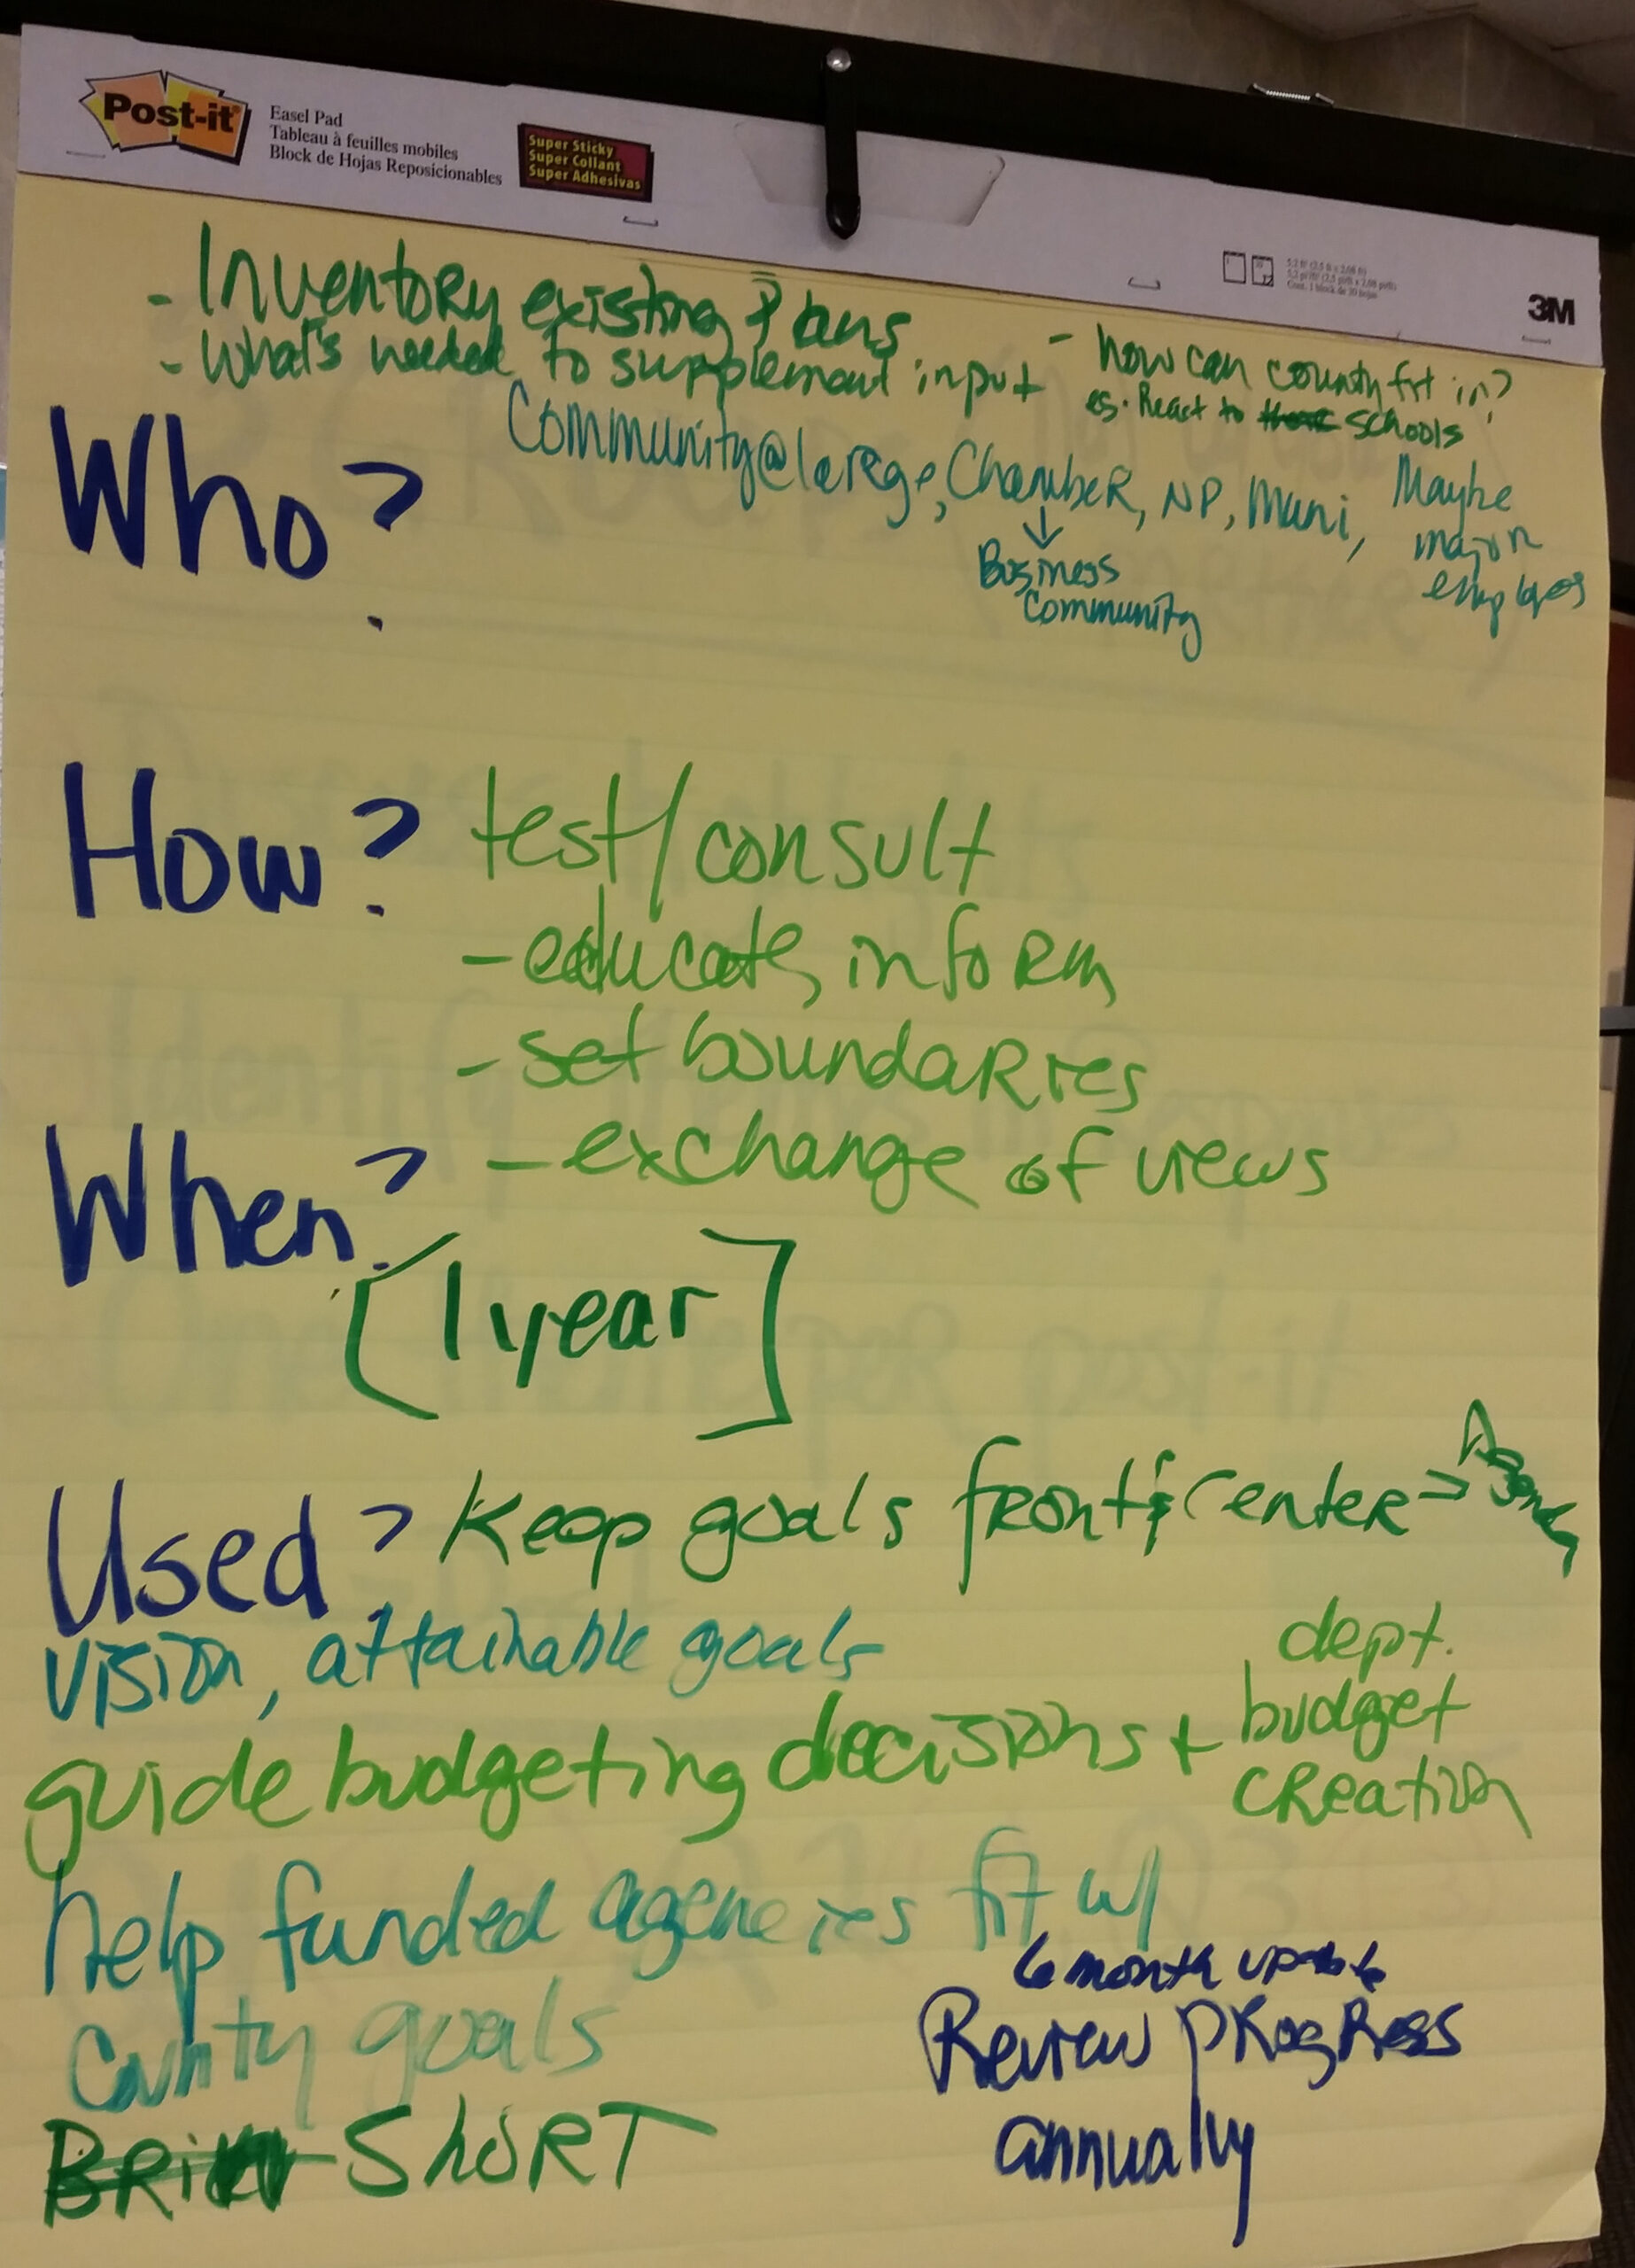 Post-it
Easel Pad
Tableau à feuilles mobiles
Block de Hojas Reposicionables
Super Sticky
Super Collant
Super Adhesivas
3M
- Inventory existing Plans
- What's needed to supplement input
- how can county fit in?
eg. React to schools
Who?
Community@large, Chamber, NP, Muni,
Maybe
major
↓
Business
Community
How? test/consult
- educate, inform
- set boundaries
- exchange of views
When?
[1 year]
Used? Keep goals front & center =>
Vision, attainable goals
guide budgeting decisions +
dept.
budget
creation
help funded agencies fit w/
County goals
6 month update
Review progress
annually
SHORT